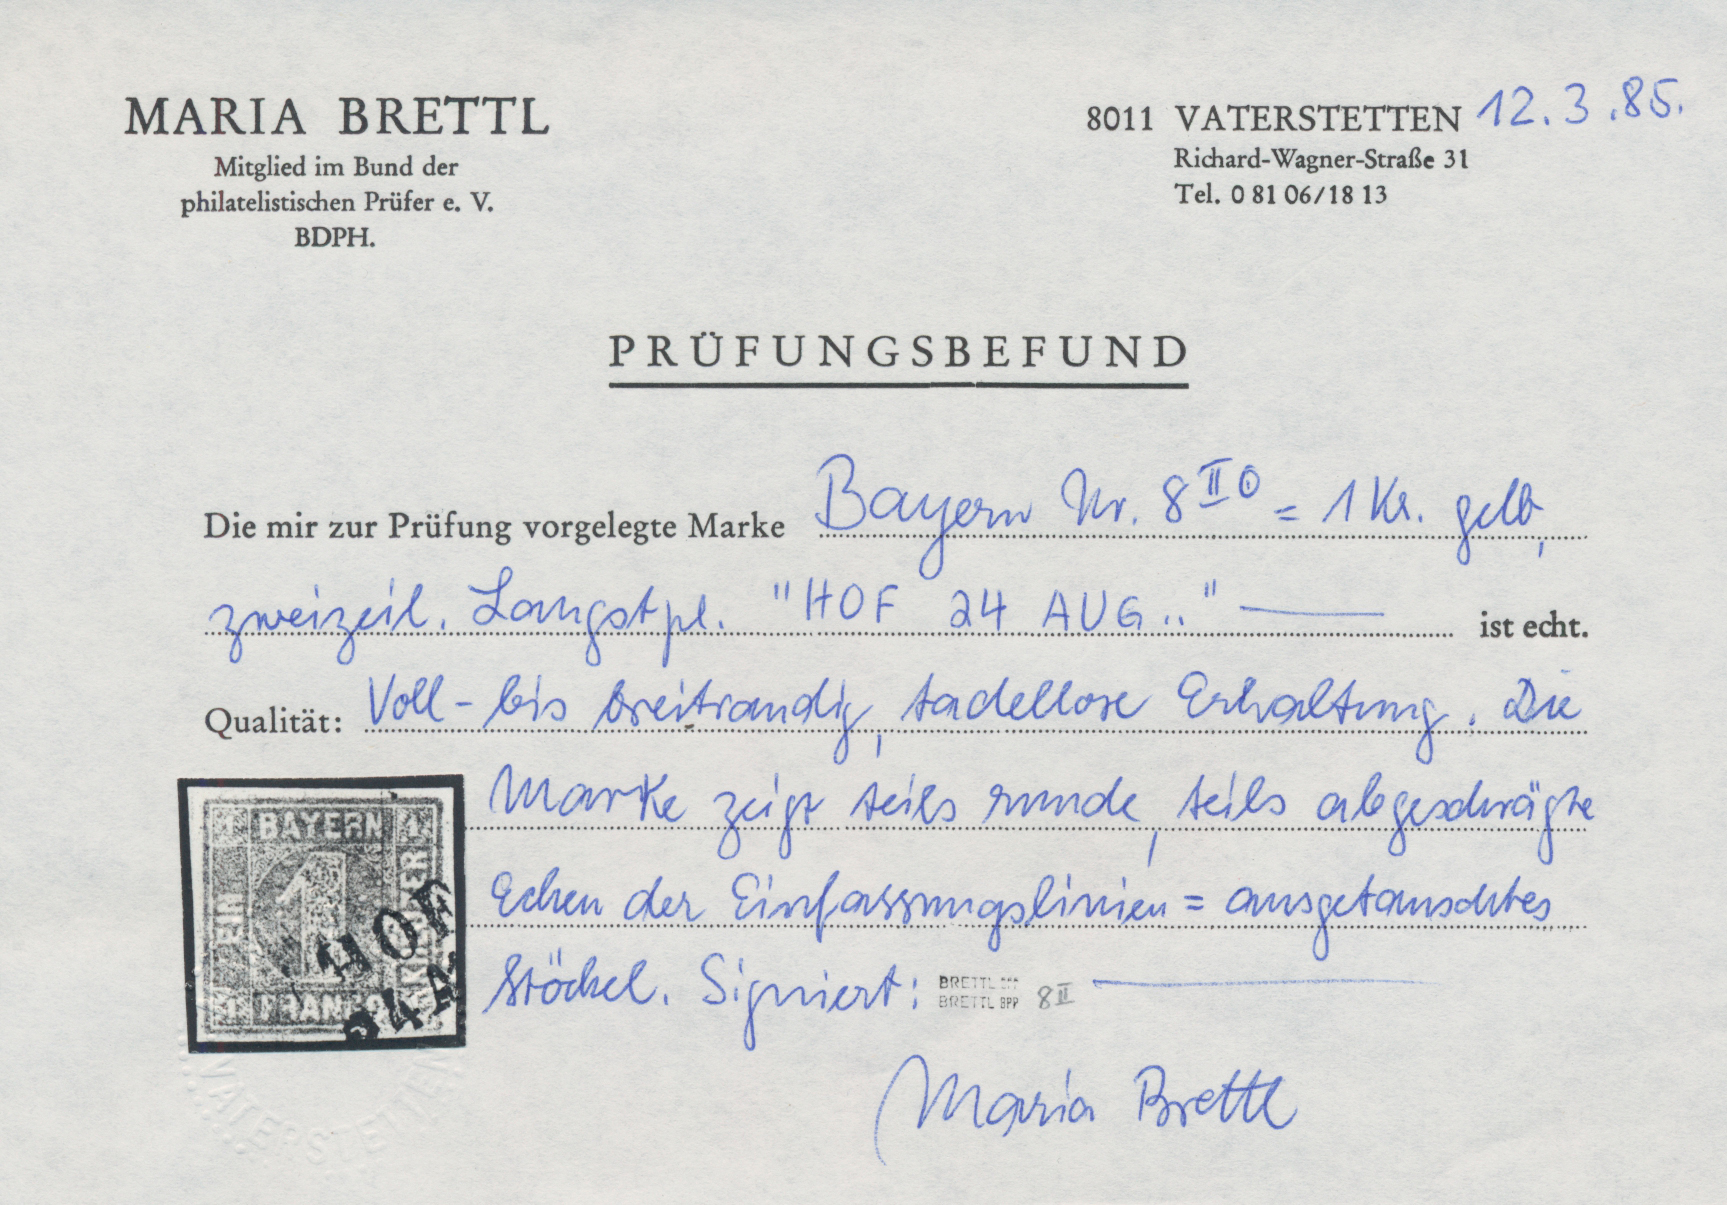 MARIA BRETTL
Mitglied im Bund der
philatelistischen Prüfer e. V.
BDPH.
8011 VATERSTETTEN 12.3.85.
Richard-Wagner-Straße 31
Tel. 0 81 06/18 13
PRÜFUNGSBEFUND
Die mir zur Prüfung vorgelegte Marke Bayern Nr. 8 II ⊙ = 1 Kr. gelb,
zweizeil. Langstpl. "HOF 24 AUG.." ist echt.
Qualität: Voll- bis breitrandig, tadellose Erhaltung. Die
Marke zeigt teils runde, teils abgeschrägte
Ecken der Einfassungslinien = ausgetauschtes
Stöckel. Signiert: BRETTL BPP 8II
BRETTL BPP
Maria Brettl
1 BAYERN 1
1
KREUZER
HOF
24 A
1 FRANCO
VATERSTETTEN